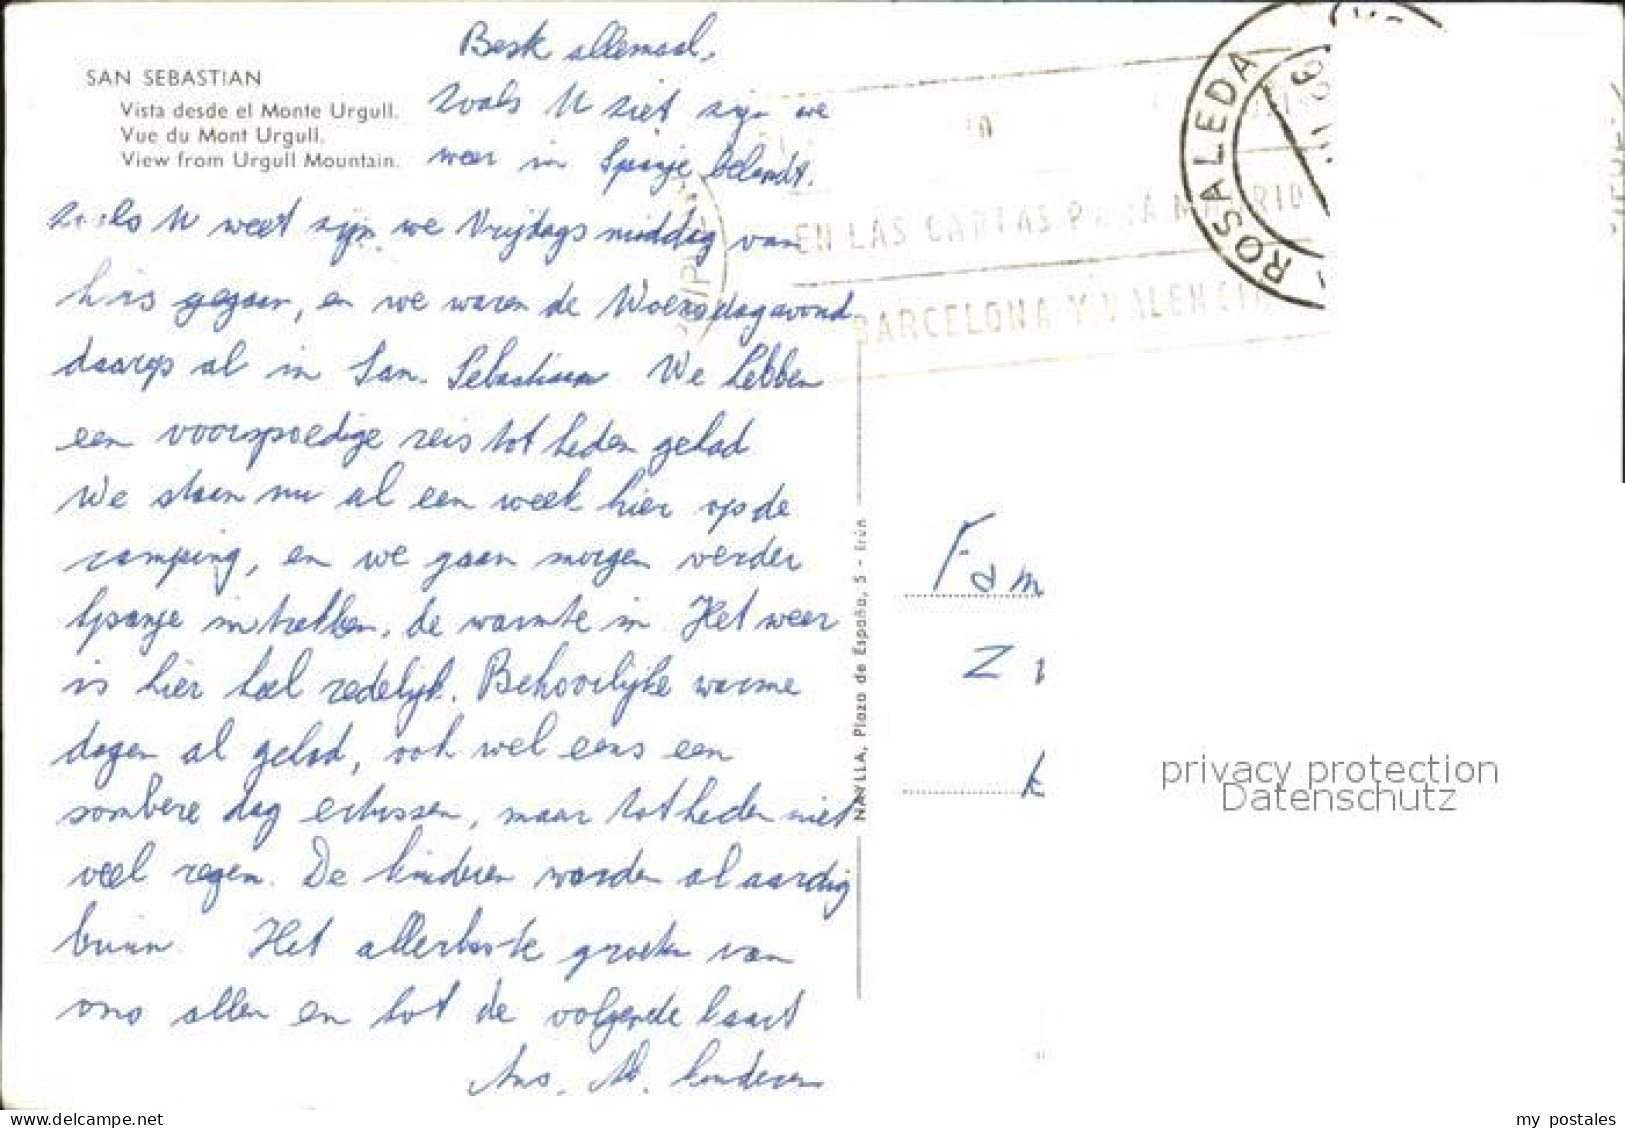 SAN SEBASTIAN
Vista desde el Monte Urgull.
Vue du Mont Urgull.
View from Urgull Mountain.
Beste allemaal,
Zoals U ziet zijn we
weer in Spanje belandt.
Zoals U weet zijn we Vrijdags middag van
huis gegaan, en we waren de Woensdagavond
daarop al in San Sebastiaan We hebben
een voorspoedige reis tot heden gehad
We staan nu al een week hier op de
camping, en we gaan morgen verder
Spanje in trekken, de warmte in. Het weer
is hier heel redelijk. Behoorlijke warme
dagen al gehad, ook wel eens een
sombere dag ertussen, maar tot heden niet
veel regen. De kinderen worden al aardig
bruin. Het allerbeste groeten van
ons allen en tot de volgende kaart
kinderen
NAVILLA, Plaza de España, 5 - Irún
EN LAS CARTAS PARA MADRID
BARCELONA Y VALENCIA
ROSALEDA
Fam
Z
k
privacy protection
Datenschutz
www.delcampe.net
my_postales